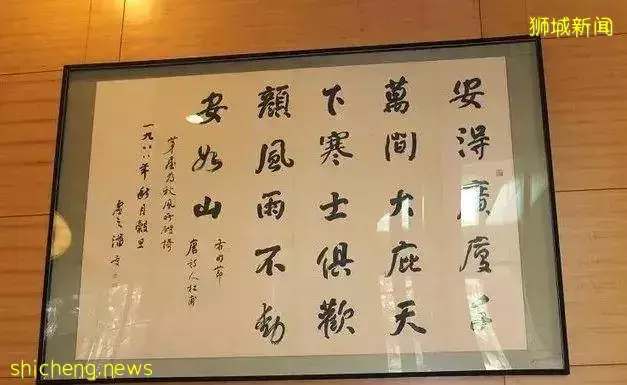 狮城新闻
安得廣廈千
萬間大庇天
下寒士俱歡
顏風雨不動
安如山
唐詩人杜甫
茅屋为秋風所破歌
一九八八年秋月穀旦
shicheng.news